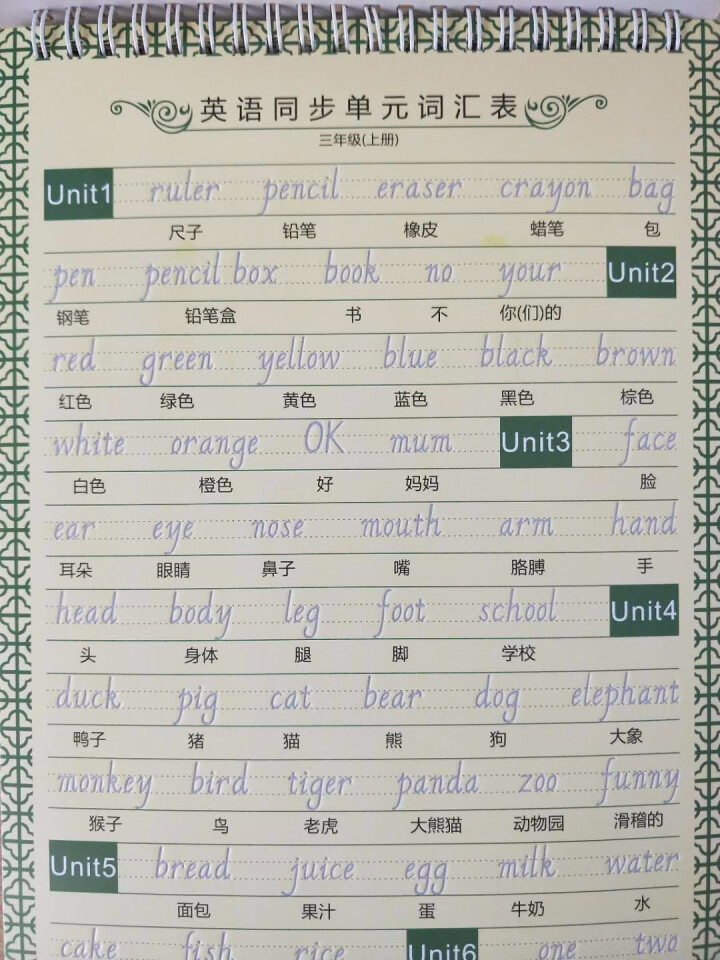 英语同步单元词汇表
三年级(上册)
Unit1 ruler pencil eraser crayon bag
尺子 铅笔 橡皮 蜡笔 包
pen pencil box book no your Unit2
钢笔 铅笔盒 书 不 你(们)的
red green yellow blue black brown
红色 绿色 黄色 蓝色 黑色 棕色
white orange OK mum Unit3 face
白色 橙色 好 妈妈 脸
ear eye nose mouth arm hand
耳朵 眼睛 鼻子 嘴 胳膊 手
head body leg foot school Unit4
头 身体 腿 脚 学校
duck pig cat bear dog elephant
鸭子 猪 猫 熊 狗 大象
monkey bird tiger panda zoo funny
猴子 鸟 老虎 大熊猫 动物园 滑稽的
Unit5 bread juice egg milk water
面包 果汁 蛋 牛奶 水
cake fish rice Unit6 one two